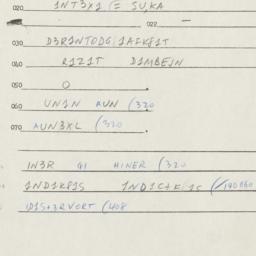 020 1NT3X1 (= SU,KA
022 —
030 D3R1NTODG:1AFK81T
040 R1Z1T D1MBEJN
050 O
060 UN1N AUN (320
070 AUN3XL (320
IN3R GI HINER (320
1ND1K81S 1ND1C+K:1S (/190860
ID1S+3RVORT (408